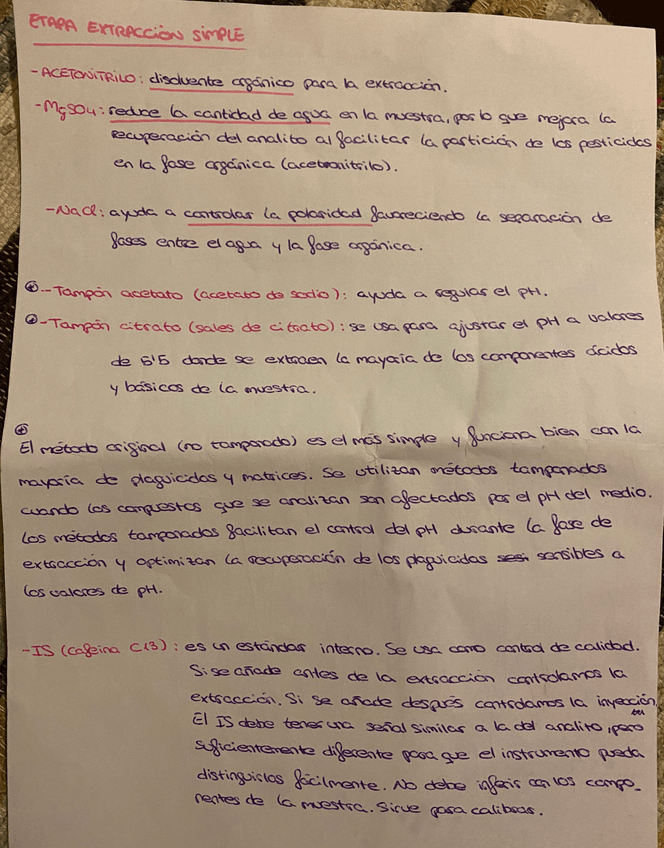 ETAPA EXTRACCIÓN SIMPLE
-ACETONITRILO: disolvente orgánico para la extracción.
-MgSO4: reduce la cantidad de agua en la muestra, por lo que mejora la
recuperación del analito al facilitar la partición de los pesticidas
en la fase orgánica (acetonitrilo).
-NaCl: ayuda a controlar la polaridad favoreciendo la separación de
fases entre el agua y la fase orgánica.
-Tampón acetato (acetato de sodio): ayuda a regular el pH.
-Tampón citrato (sales de citrato): se usa para ajustar el pH a valores
de 5'5 donde se extraen la mayoría de los componentes ácidos
y básicos de la muestra.
El método original (no tamponado) es el más simple y funciona bien con la
mayoría de plaguicidas y matrices. Se utilizan métodos tamponados
cuando los compuestos que se analizan son afectados por el pH del medio.
Los métodos tamponados facilitan el control del pH durante la fase de
extracción y optimizan la recuperación de los plaguicidas sensibles a
los valores de pH.
-IS (Cafeína C13): es un estándar interno. Se usa como control de calidad.
Si se añade antes de la extracción controlamos la
extracción. Si se añade después controlamos la inyección.
El IS debe tener una señal similar a la del analito, pero
suficientemente diferente para que el instrumento pueda
distinguirlos fácilmente. No debe inferir con los compo-
nentes de la muestra. Sirve para calibrar.